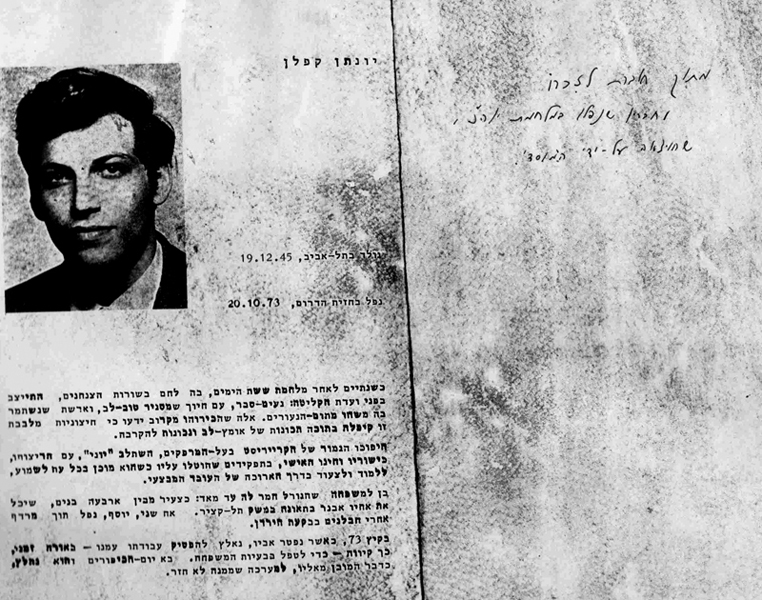 יונתן קפלן
נולד בתל-אביב, 19.12.45
נפל בחזית הדרום, 20.10.73
כשנתיים לאחר מלחמת ששת הימים, בה לחם בשורות הצנחנים, התייצב
בפני ועדת הקליטה: נעים-סבר, עם חיוך שמסגיר טוב-לב, וארשת שנשתמר
בה משהו מתום-הנעורים. אלה שהכירוהו מקרוב ידעו כי חיצוניות מלבבת
זו קיפלה בתוכה תכונות של אומץ-לב ונכונות להקרבה.
היפוכו הגמור של הקרייריסט בעל-המרפקים, השתלב "יוני", עם חריצותו,
כישוריו וחינו האישי, בתפקידים שהוטלו עליו כשהוא מוכן בכל עת לשמוע,
ללמוד ולצעוד בדרך הארוכה של העובד המבצעי.
בן למשפחה שהגורל המר לה עד מאד: כצעיר מבין ארבעה בנים, שיכל
את אחיו אבנר בתאונה במשק תל-קציר. אח שני, יוסף, נפל תוך מרדף
אחרי חבלנים בבקעת הירדן.
בקיץ 73, כאשר נפטר אביו, נאלץ להפסיק עבודתו עמנו - באורח זמני,
כך קיווה - כדי לטפל בבעיות המשפחה. בא יום-הכיפורים והוא נחלץ,
כדבר המובן מאליו, למערכה שממנה לא חזר.
מתוך חוברת לזכרו
וחבריו שנפלו במלחמת יוה"כ,
שהוצאה על-ידי המוסד.